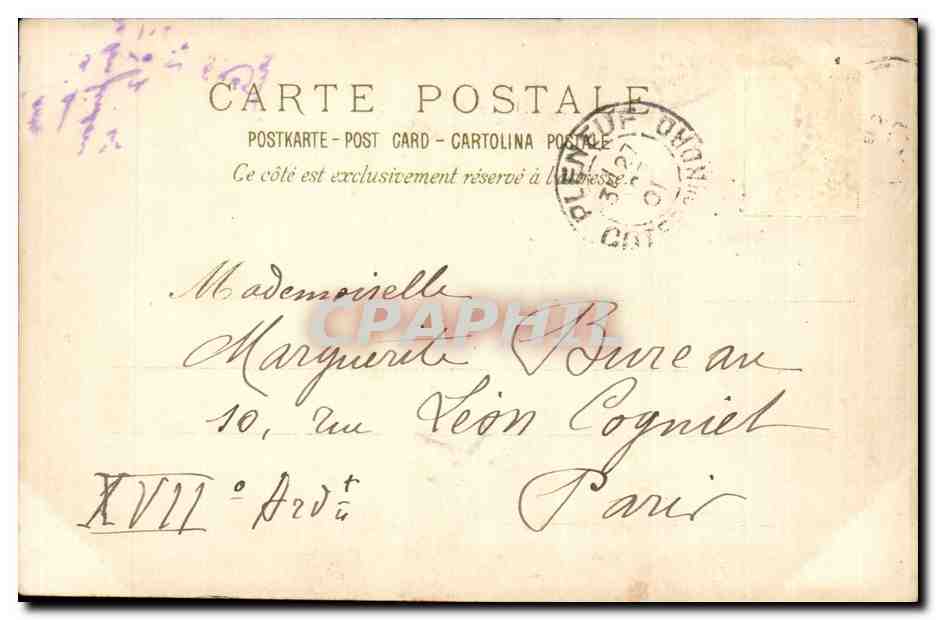 CARTE POSTALE
POSTKARTE - POST CARD - CARTOLINA POSTALE
Ce côté est exclusivement réservé à l'adresse.
PLENEUF
27
01
COTES
Mademoiselle
CPAPHIL
Marguerite Bureau
10, rue Léon Cogniet
XVII° Ardt
Paris